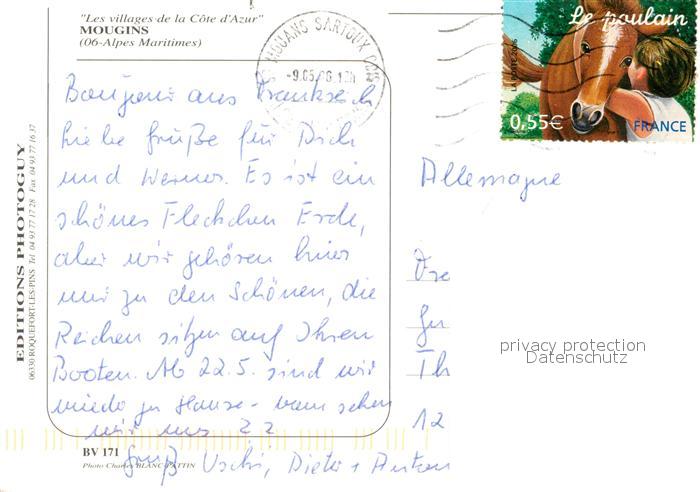 "Les villages de la Côte d'Azur"
MOUGINS
(06-Alpes Maritimes)
MOUANS SARTOUX
-9.05.06
Le poulain
LA POSTE 2006
0,55€
FRANCE
Bonjour aus Frankreich
liebe Grüße für Dich
und Werner. Es ist ein
schönes Fleckchen Erde,
aber wir gehören hier
nur zu den Schönen, die
Reichen sitzen auf Ihren
Booten. Ab 22.5. sind wir
wieder zu Hause - wann sehen
wir uns ??
Gruß Uschi, Dieter + Anton
Allemagne
Th
12
privacy protection
Datenschutz
EDITIONS PHOTOGUY
06330 ROQUEFORT-LES-PINS Tel 04 93 77 17 28 Fax 04 93 77 16 37
BV 171
Photo Charles BLANC-PATTIN